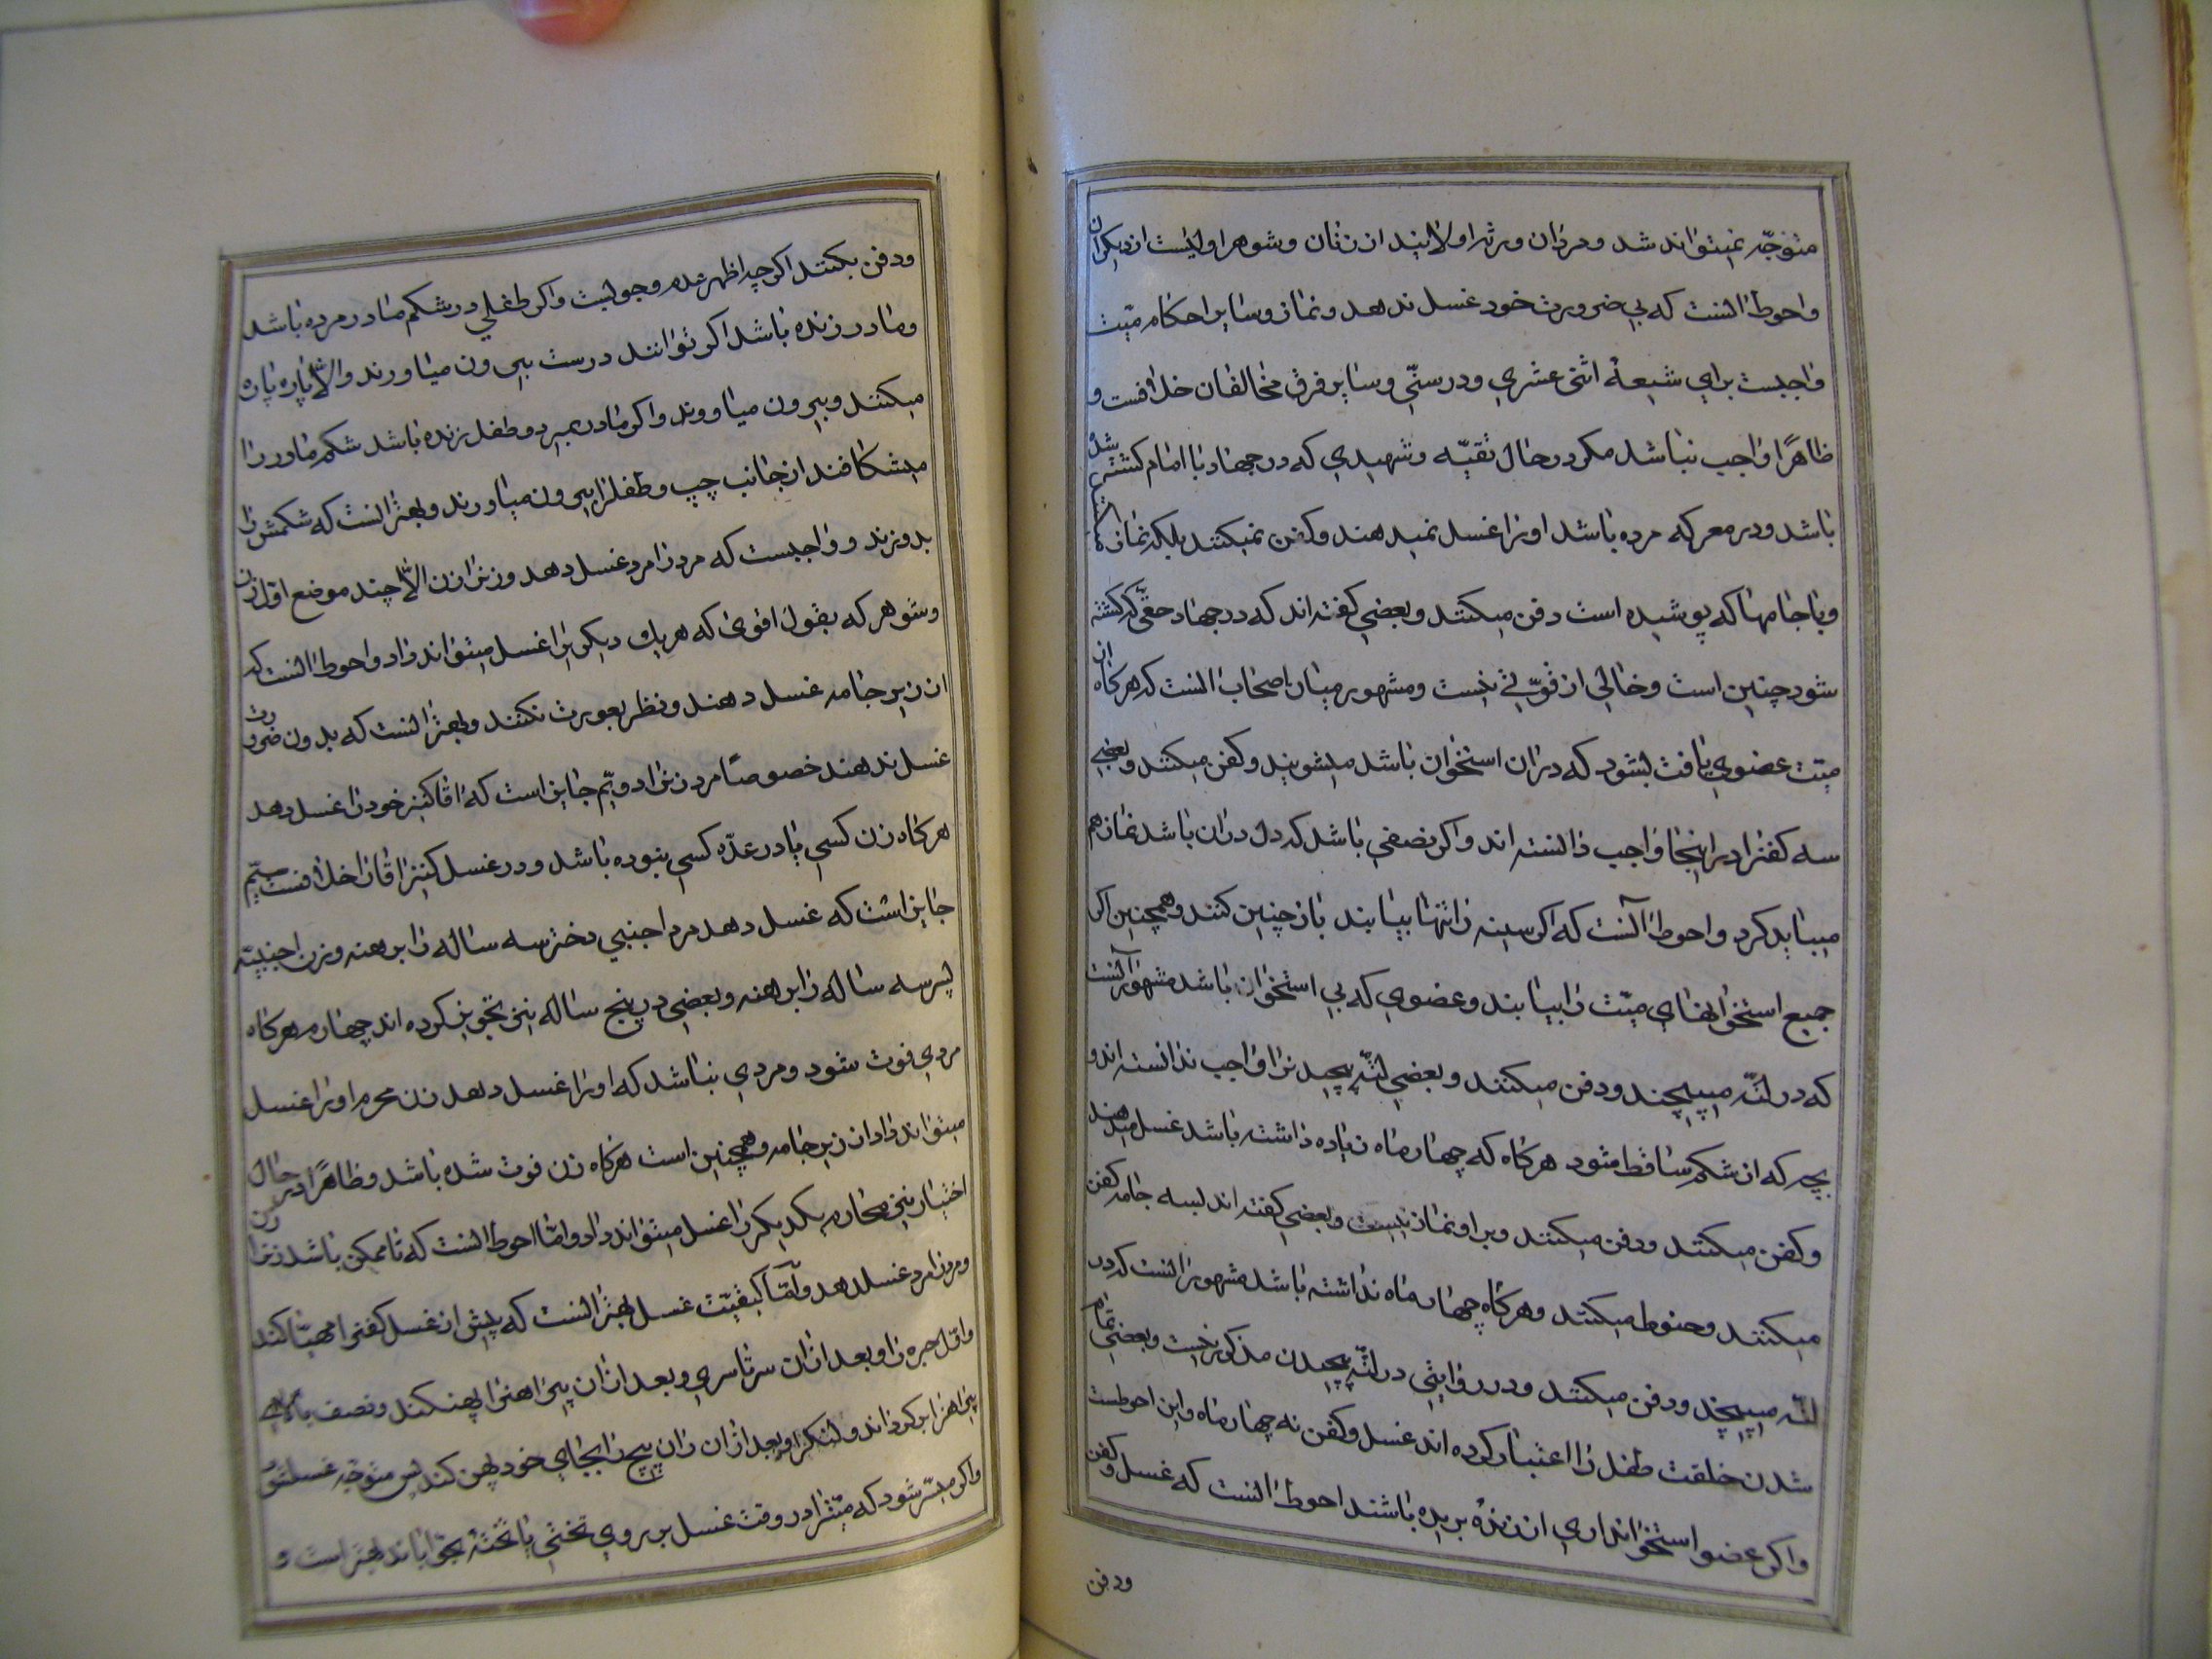 متوجّه نمیتواند شد و مردان ورثه اولایند از زنان و شوهر اولیست از دیکران
و احوط انست که بی ضرورت خود غسل ندهد و نماز و سایر احکام میّت
واجبست برای شیعهٔ اثنی عشری و در سنّی و سایر فرق مخالفان خلافست و
ظاهرًا واجب نباشد مکر در حال تقیّه و شهیدی که در جهاد با امام کشته شده
باشد و در معرکه مرده باشد او را غسل نمیدهند و کفن نمیکنند بلکه نماز
و با جامها که پوشیده است دفن میکنند و بعضی کفته اند که در جهاد حقّی که کشته
شود چنین است و خالی از قوّتی نیست و مشهور میان اصحاب انست که هرکاه از
میّت عضوی یافت بشود که در ان استخوان باشد میشویند و کفن میکنند و بعضی
سه کفنرا در اینجا واجب دانسته اند و اکر نصفی باشد که دل در ان باشد نماز هم
میباید کرد و احوط آنست که اکر سینه را تنها بیابند باز چنین کنند و همچنین اکر
جمیع استخوانهای میّت را بیابند و عضوی که بی استخوان باشد مشهور آنست
که در لتّه میپیچند و دفن میکنند و بعضی لتّه پیچیدنرا واجب ندانسته اند و
بچه که از شکم ساقط شود هرکاه که چهار ماه زیاده داشته باشد غسل میدهند
و کفن میکنند و دفن میکنند و بر او نماز نیست و بعضی کفته اند بسه جامه کفن
میکنند و حنوط میکنند و هرکاه چهار ماه نداشته باشد مشهور انست که در
لتّه میپیچند و دفن میکنند و در روایتی در لتّه پیچیدن مذکور نیست و بعضی تمام
شدن خلقت طفل را اعتبار کرده اند غسل و کفن نه چهار ماه و این احوطست
و اکر عضو استخوانداری از زندهٔ بریده باشند احوط انست که غسل و کفن
و دفن
و دفن بکنند اکرچه اظهر عدم وجوبست و اکر طفلی در شکم مادر مرده باشد
و مادر زنده باشد اکر توانند درست بیرون میاورند و الّا پاره پاره
میکنند و بیرون میاورند و اکر مادر بمیرد و طفل زنده باشد شکم مادر را
میشکافند از جانب چپ و طفلرا بیرون میاورند و بهتر انست که شکمش را
بدوزند و واجبست که مرد را مرد غسل دهد و زنرا زن الّا چند موضع اوّل زن
و شوهر که بقول اقوی که هریک دیکریرا غسل میتواند داد و احوط انست که
از زیر جامه غسل دهند و نظر بعورت نکنند و بهتر انست که بدون ضرورت
غسل ندهند خصوصًا مرد زنرا دویّم جایز است که اقا کنیز خود را غسل دهد
هرکاه زن کسی یا در عدّه کسی نبوده باشد و در غسل کنیز اقارا خلافست سیّم
جایز است که غسل دهد مرد اجنبی دختر سه ساله را برهنه و زن اجنبیّه
پسر سه ساله را برهنه و بعضی در پنج ساله نیز تجویز کرده اند چهارم هرکاه
مردی فوت شود و مردی نباشد که او را غسل دهد زن محرم او را غسل
میتواند داد از زیر جامه و همچنین است هرکاه زن فوت شده باشد و ظاهرًا در حال
اختیار نیز محارم یکدیکر را غسل میتواند داد و امّا احوط انست که تا ممکن باشد زنرا زن
و مرد را مرد غسل دهد و امّا کیفیّت غسل بهتر انست که پیش از غسل کفنرا مهیّا کند
و اوّل حبره را و بعد از ان سرتاسری و بعد از ان پیراهنرا پهن کند و نصف بالای
پیراهنرا بر کرداند و لنکرا و بعد از ان ران پیچ را بجای خود پهن کند پس متوجّه غسل شود
و اکر میسّر شود که میّترا در وقت غسل بر روی تختی یا تختهٔ بخوابانند بهتر است و